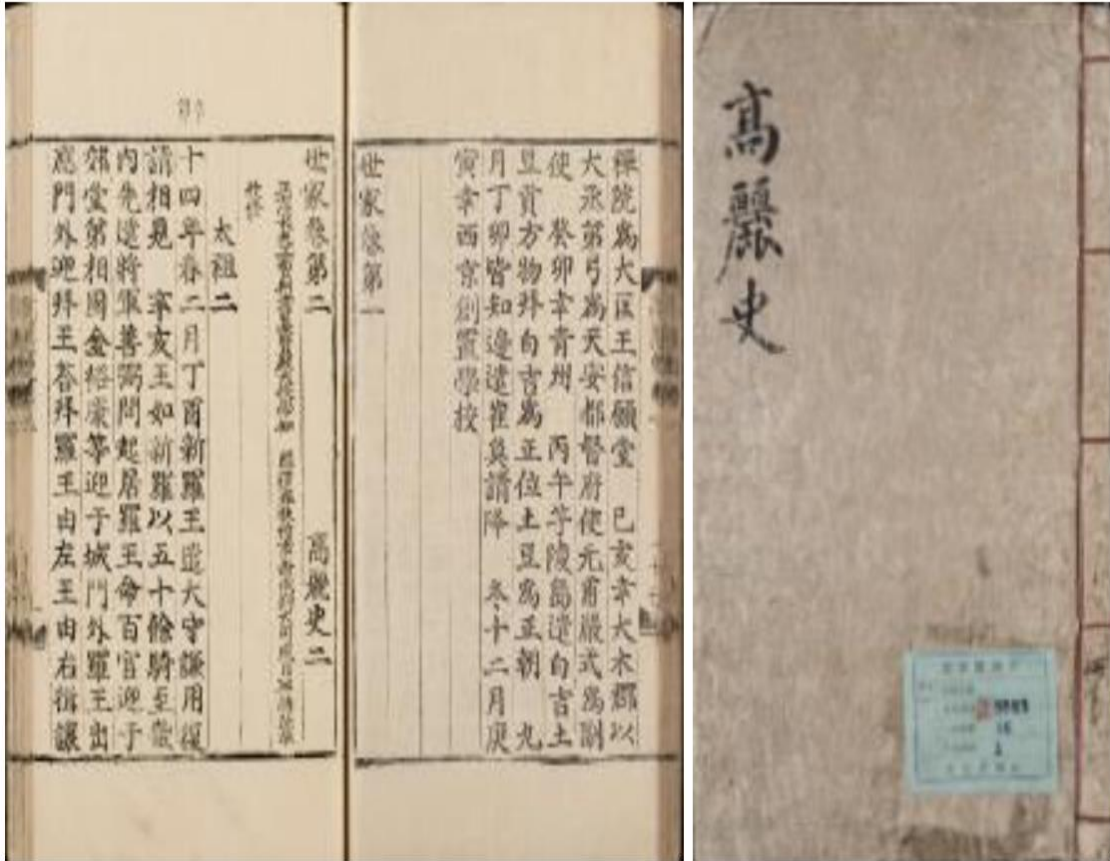 高麗史
禪院爲大匡王信願堂 己亥幸大木郡以
大丞第弓爲天安都督府使元甫嚴式爲副
使 癸卯幸青州 丙午芋陵島遣白吉土
豆貢方物拜白吉爲正位土豆爲正朝 九
月丁卯皆知邊遣崔奐請降 冬十二月庚
寅幸西京創置學校
世家卷第一
世家卷第二 高麗史二
太祖二
十四年春二月丁酉新羅王遣大守謙用復
請相見 辛亥王如新羅以五十餘騎至畿
內先遣將軍善弼問起居羅王命百官迎于
郊堂弟相國金裕廉等迎于城門外羅王出
應門外迎拜王答拜羅王由左王由右揖讓